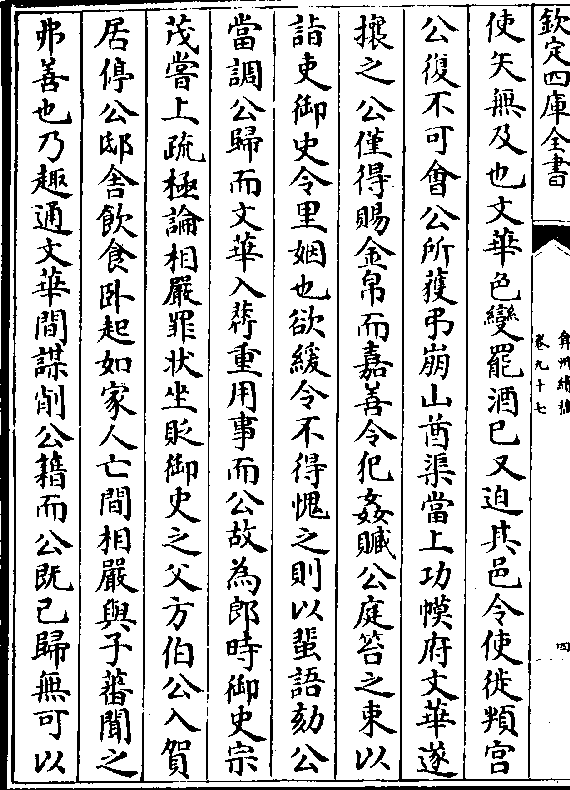 欽定四庫全書
弇州續稿
卷九十七
四
使矢無及也文華色變罷酒已又迫其邑令使徙頖宮
公復不可會公所獲弔崩山酋渠當上功幙府文華遂
攘之公僅得賜金帛而嘉善令犯姦贓公庭笞之束以
詣吏御史令里姻也欲緩令不得愧之則以蜚語劾公
當調公歸而文華入荐重用事而公故為郎時御史宗
茂嘗上疏極論相嚴罪状坐貶御史之父方伯公入賀
居停公邸舍飲食卧起如家人亡間相嚴與子蕃聞之
弗善也乃趣通文華間謀削公籍而公既已歸無可以